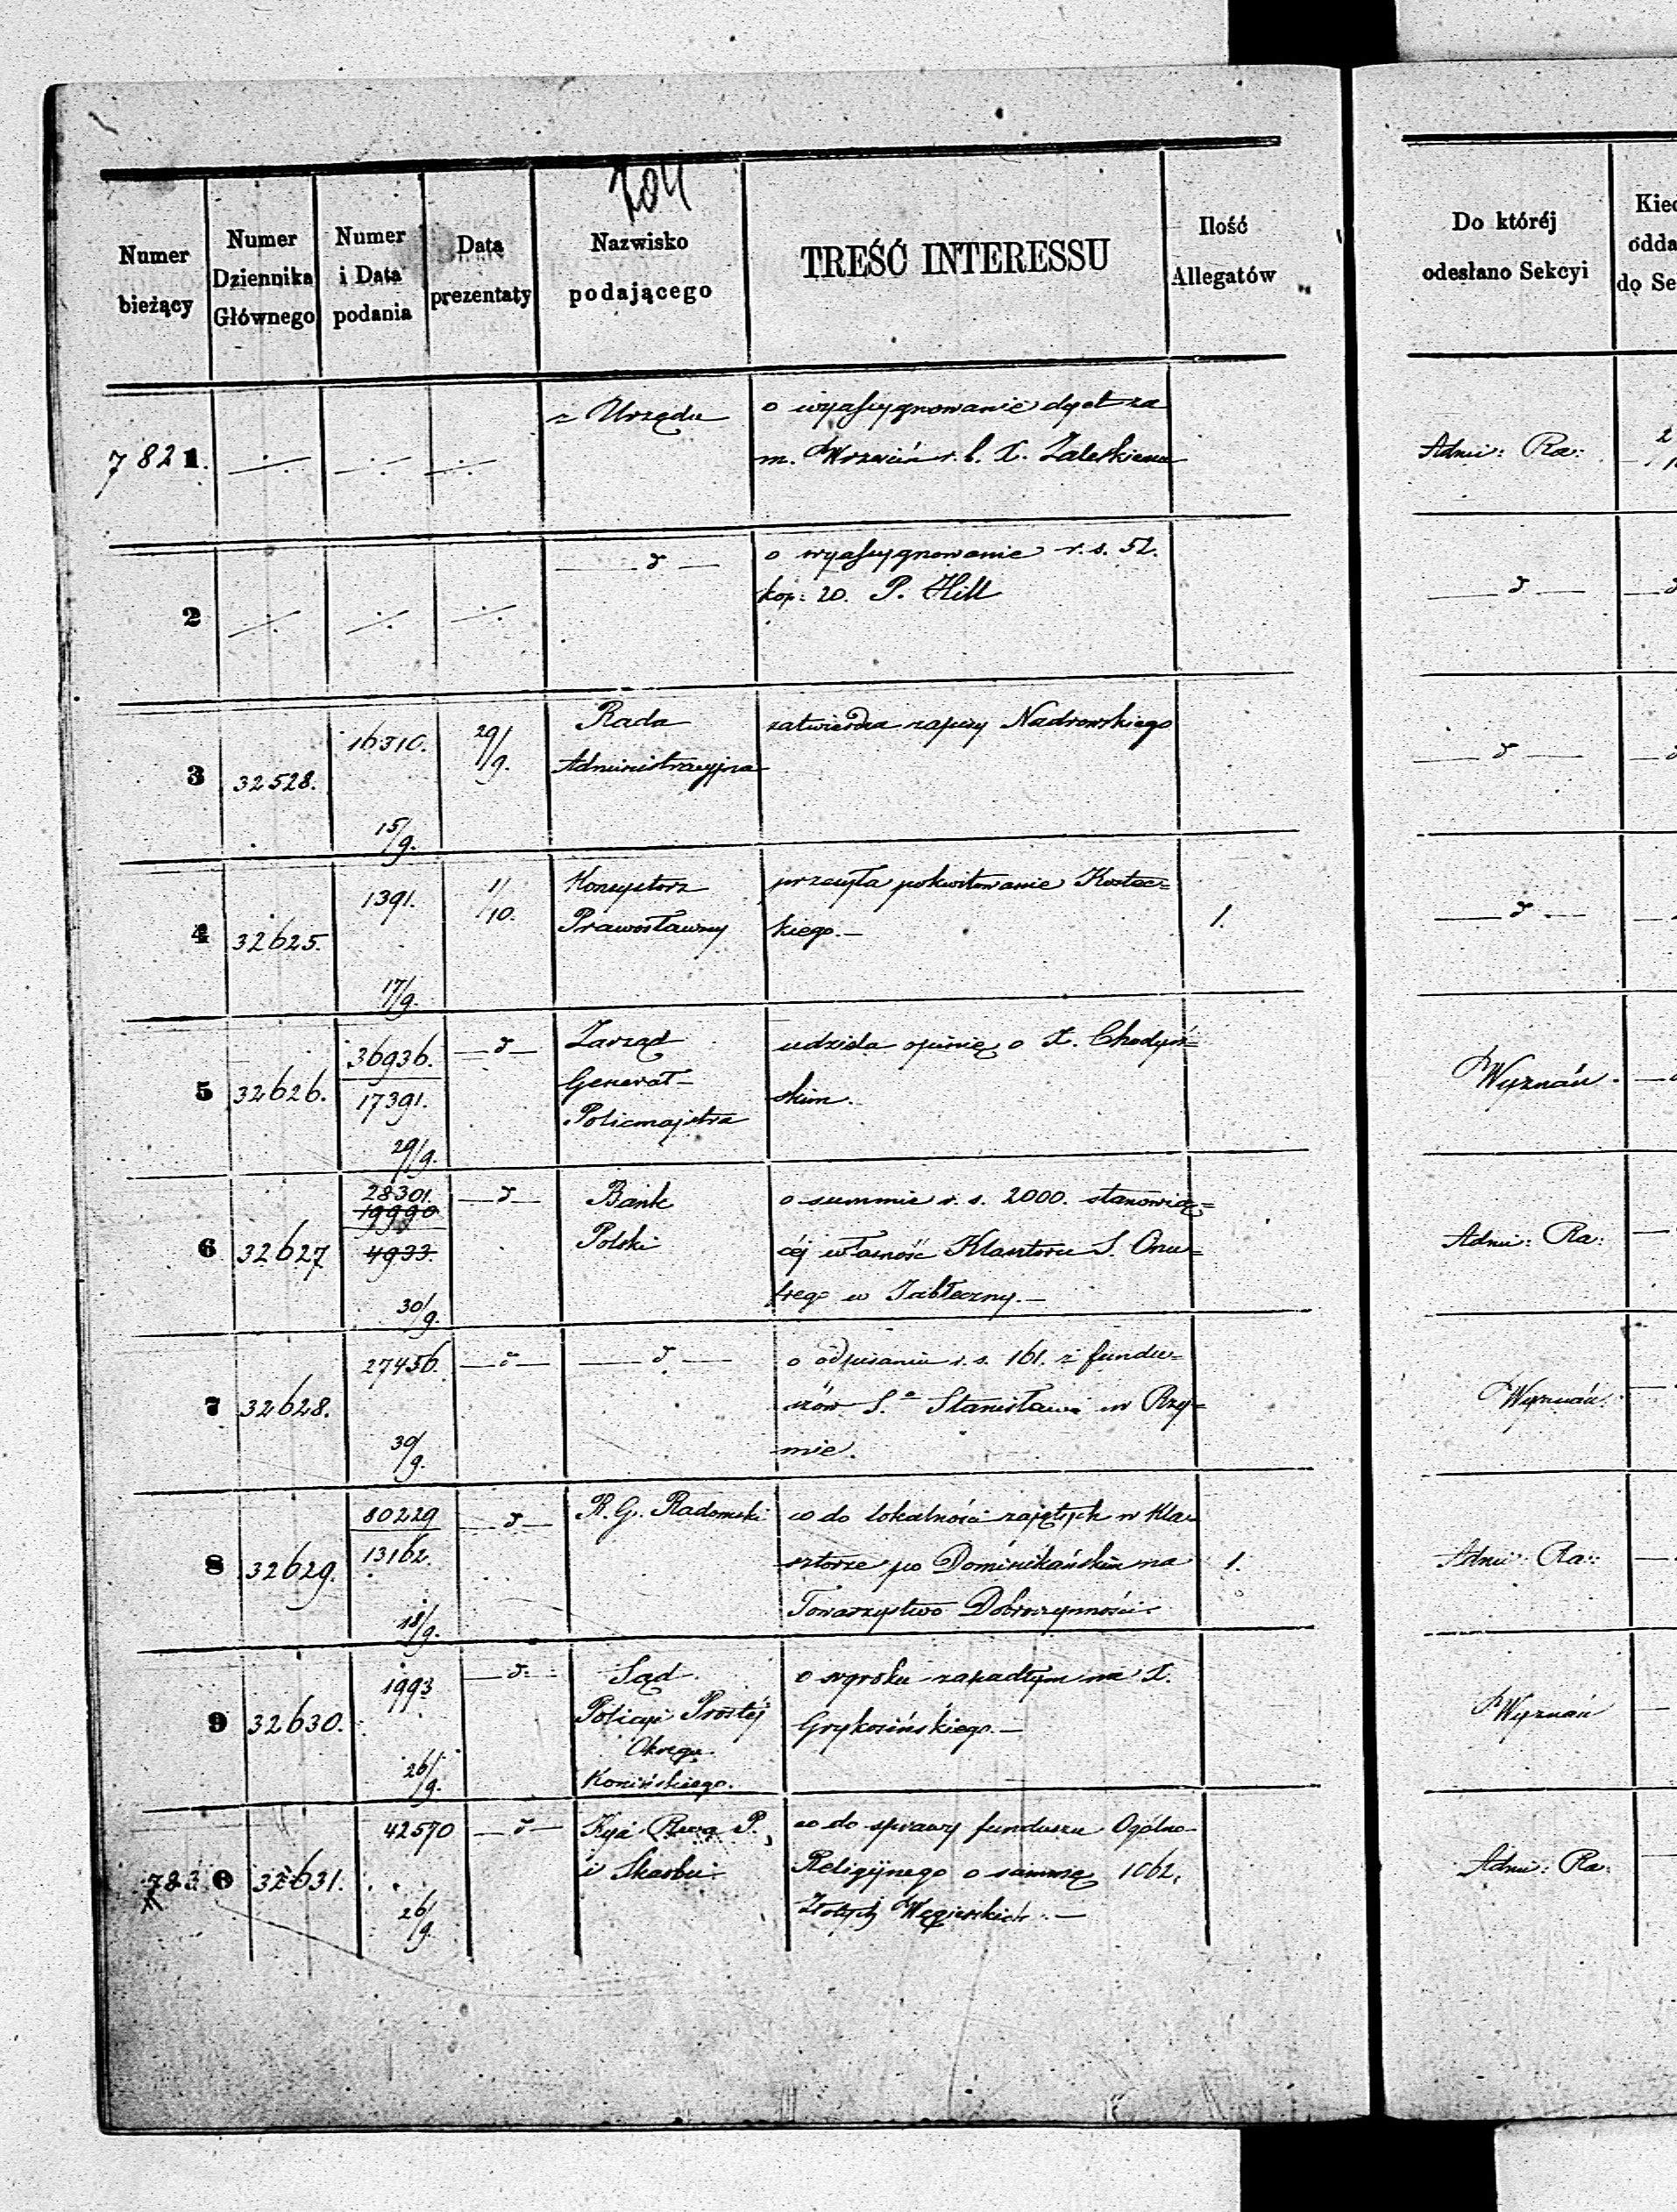 204
Numer bieżący
Numer Dziennika Głównego
Numer i Data podania
Data prezentaty
Nazwisko podającego
TREŚĆ INTERESSU
Ilość Allegatów
Do któréj odesłano Sekcyi
7821.
z Urzędu
o wyasygnowanie dyet za
m. Wrzesień r. b. X. Zaleskiemu
Admi: Ra:
2
d
o wyasygnowanie r. s. 52.
kop: 20. P. Hill
d
3
32528.
16310.
15/9.
29/9.
Rada
Administracyjna
zatwierdza zapisy Nadrowskiego
d
4
32625.
1391.
17/9.
1/10.
Konsystorz
Prawosławny
przesyła pokwitowanie Kostec=
kiego.—
1.
d
5
32626.
36936.
17391.
29/9.
d
Zarząd
Generał-
Policmajstra
udziela opinię o X. Chodyń=
skim.
Wyznań.
6
32627
28301.
19990
4933.
30/9.
d
Bank
Polski
o summie r. s. 2000. stanowią=
céj własność Klasztoru S. Onu=
frego w Jabłeczny.—
Admi: Ra:
7
32628.
27456.
30/9.
d
d
o odpisaniu r. s. 161. z fundu=
szów S.o Stanisława w Rzy=
mie.
Wyznań.
8
32629.
80229
13162.
18/9.
d
R. G. Radomski
co do lokalności zajętych w Kla=
sztorze po Dominikańskim na
Towarzystwo Dobroczynności.
1.
Admi: Ra:
9
32630.
1993
26/9.
d
Sąd
Policyi Prostéj
Okręgu
Konińskiego.
o wyroku zapadłym na X.
Grykosińskiego.—
Wyznań
7830
32631.
42570
26/9.
d
P.
i Skarbu
co do sprawy funduszu Ogólno-
Religijnego o summę 1062.
Złotych Węgierskich.—
Admi: Ra: